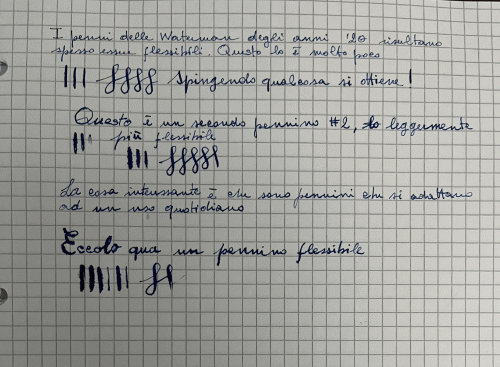 I penni delle Waterman degli anni '20 risultano
spesso esse flessibili. Questo lo è molto poco
spingendo qualcosa si ottiene!
Questo è un secondo pennino #2, leggermente
più flessibile
La cosa interessante è che sono pennini che si adattano
ad un uso quotidiano
Eccolo qua un pennino flessibile